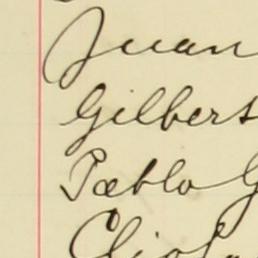 Juan
Gilbert
Pablo G